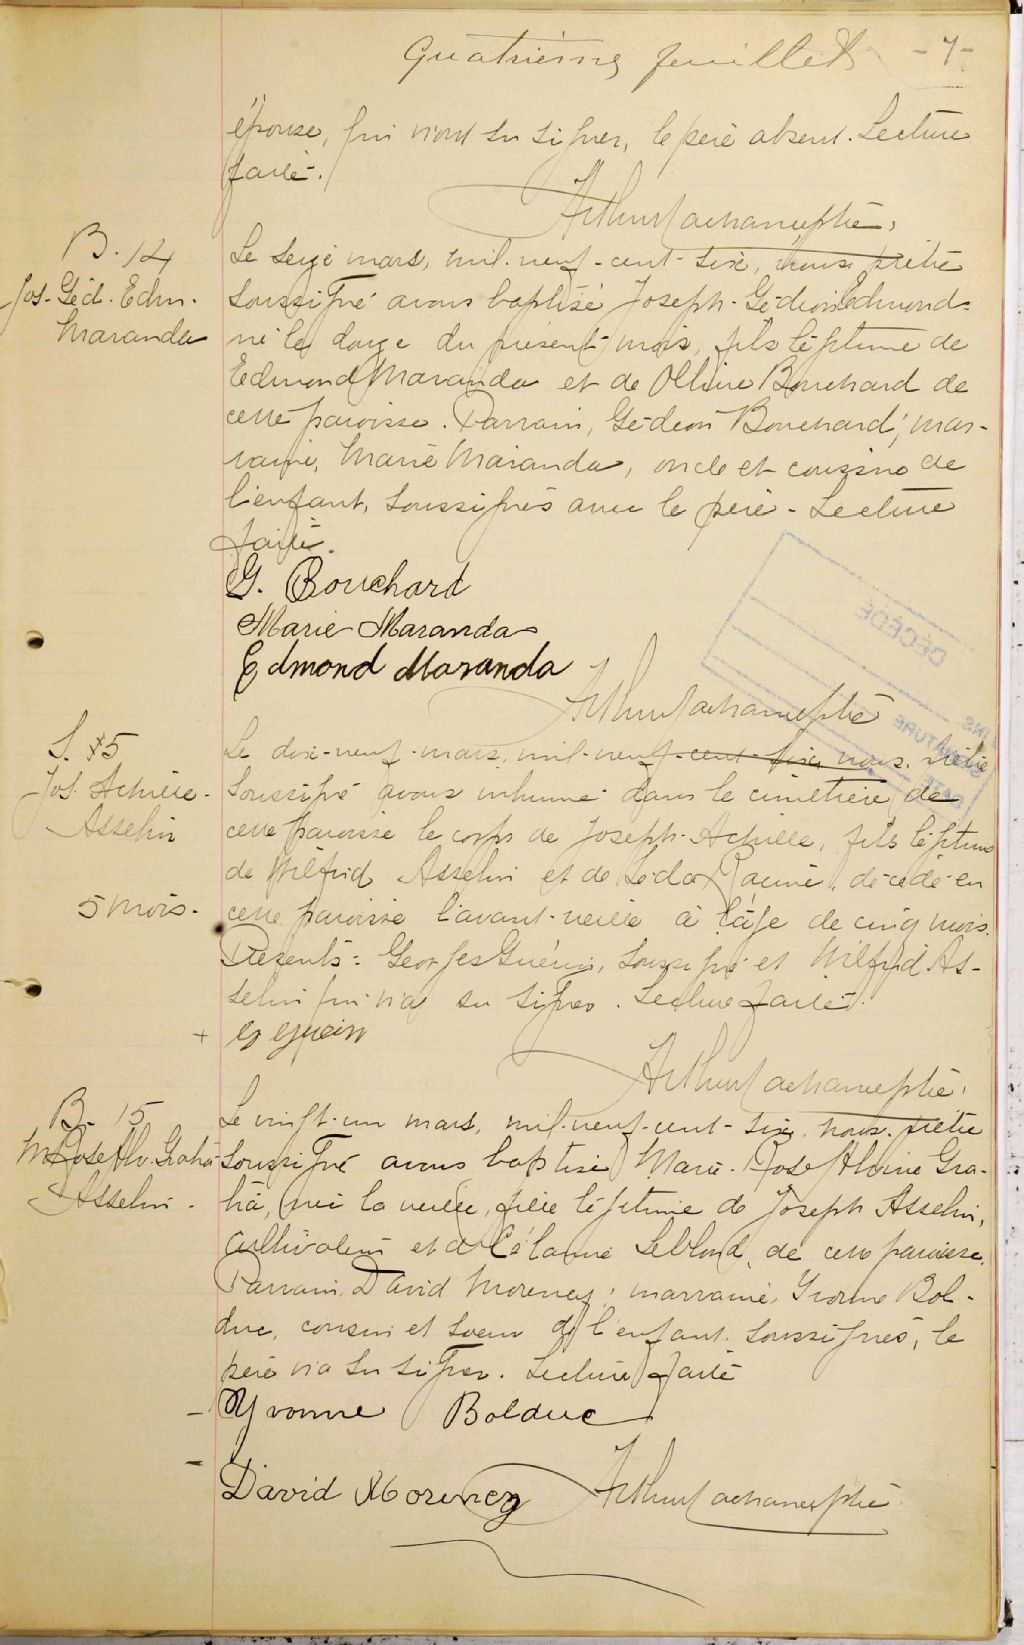 Quatrième feuillet - 7 -
épouse, qui n'ont su signer, le père absent. Lecture
faite.
Arthur Lachance ptre.
B. 14
Jos. Géd. Edm.
Maranda
Le seize mars, mil-neuf-cent-six, nous, prêtre
soussigné avons baptisé Joseph-Gédéon Edmond
né le douze du présent mois, fils légitime de
Edmond Maranda et de Bouchard de
cette paroisse. Parrain, Gédéon Bouchard, mar-
raine, Marie Maranda, oncle et cousine de
l'enfant, soussignés avec le père - Lecture
faite.
G. Bouchard
Marie Maranda
Edmond Maranda
DÉCÉDÉ
SIGNATURE
DATE
Arthur Lachance ptre
S. 5
Jos. Achille
Asselin
5 mois.
Le dix-neuf mars, mil-neuf-cent-six, nous, prêtre
soussigné avons inhumé dans le cimetière de
cette paroisse le corps de Joseph-Achille, fils légitime
de Wilfrid Asselin et de Léda Racine, décédé en
cette paroisse l'avant-veille à l'âge de cinq mois.
Présents: Georges Guérin, soussigné et Wilfrid As-
selin qui n'a su signer. Lecture faite.
+ g guerin
Arthur Lachance ptre.
B. 15
M. Rose Alv. Graha
Asselin.
Le vingt-un mars, mil-neuf-cent-six, nous, prêtre
soussigné avons baptisé Marie-Rose Alvine Gra-
ha, née la veille, fille légitime de Joseph Asselin,
cultivateur et de Leblond, de cette paroisse.
Parrain, David Morency; marraine, Yvonne Bol-
duc, cousin et soeur de l'enfant, soussignés, le
père n'a su signer. Lecture faite
- Yvonne Bolduc
- David Morency Arthur Lachance ptre.